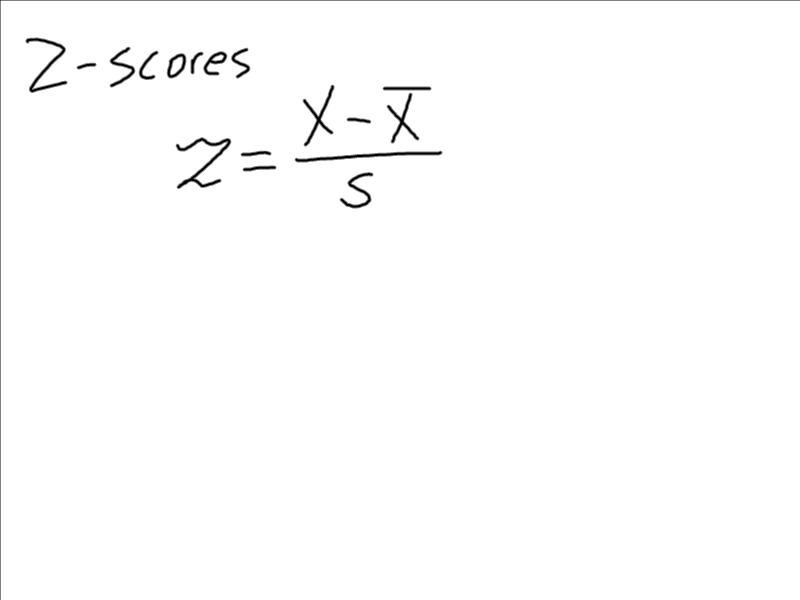 Z-scores
z = (x - x̅) / s